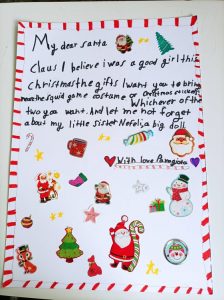 My dear santa
Claus I believe i was a good girl this
christmas the gifts I want you to bring
me are the squid game costume or christmas
Whichever of the
two you want. And let me not forget
about my little sister Nefeli, a big doll
With love Panagiota